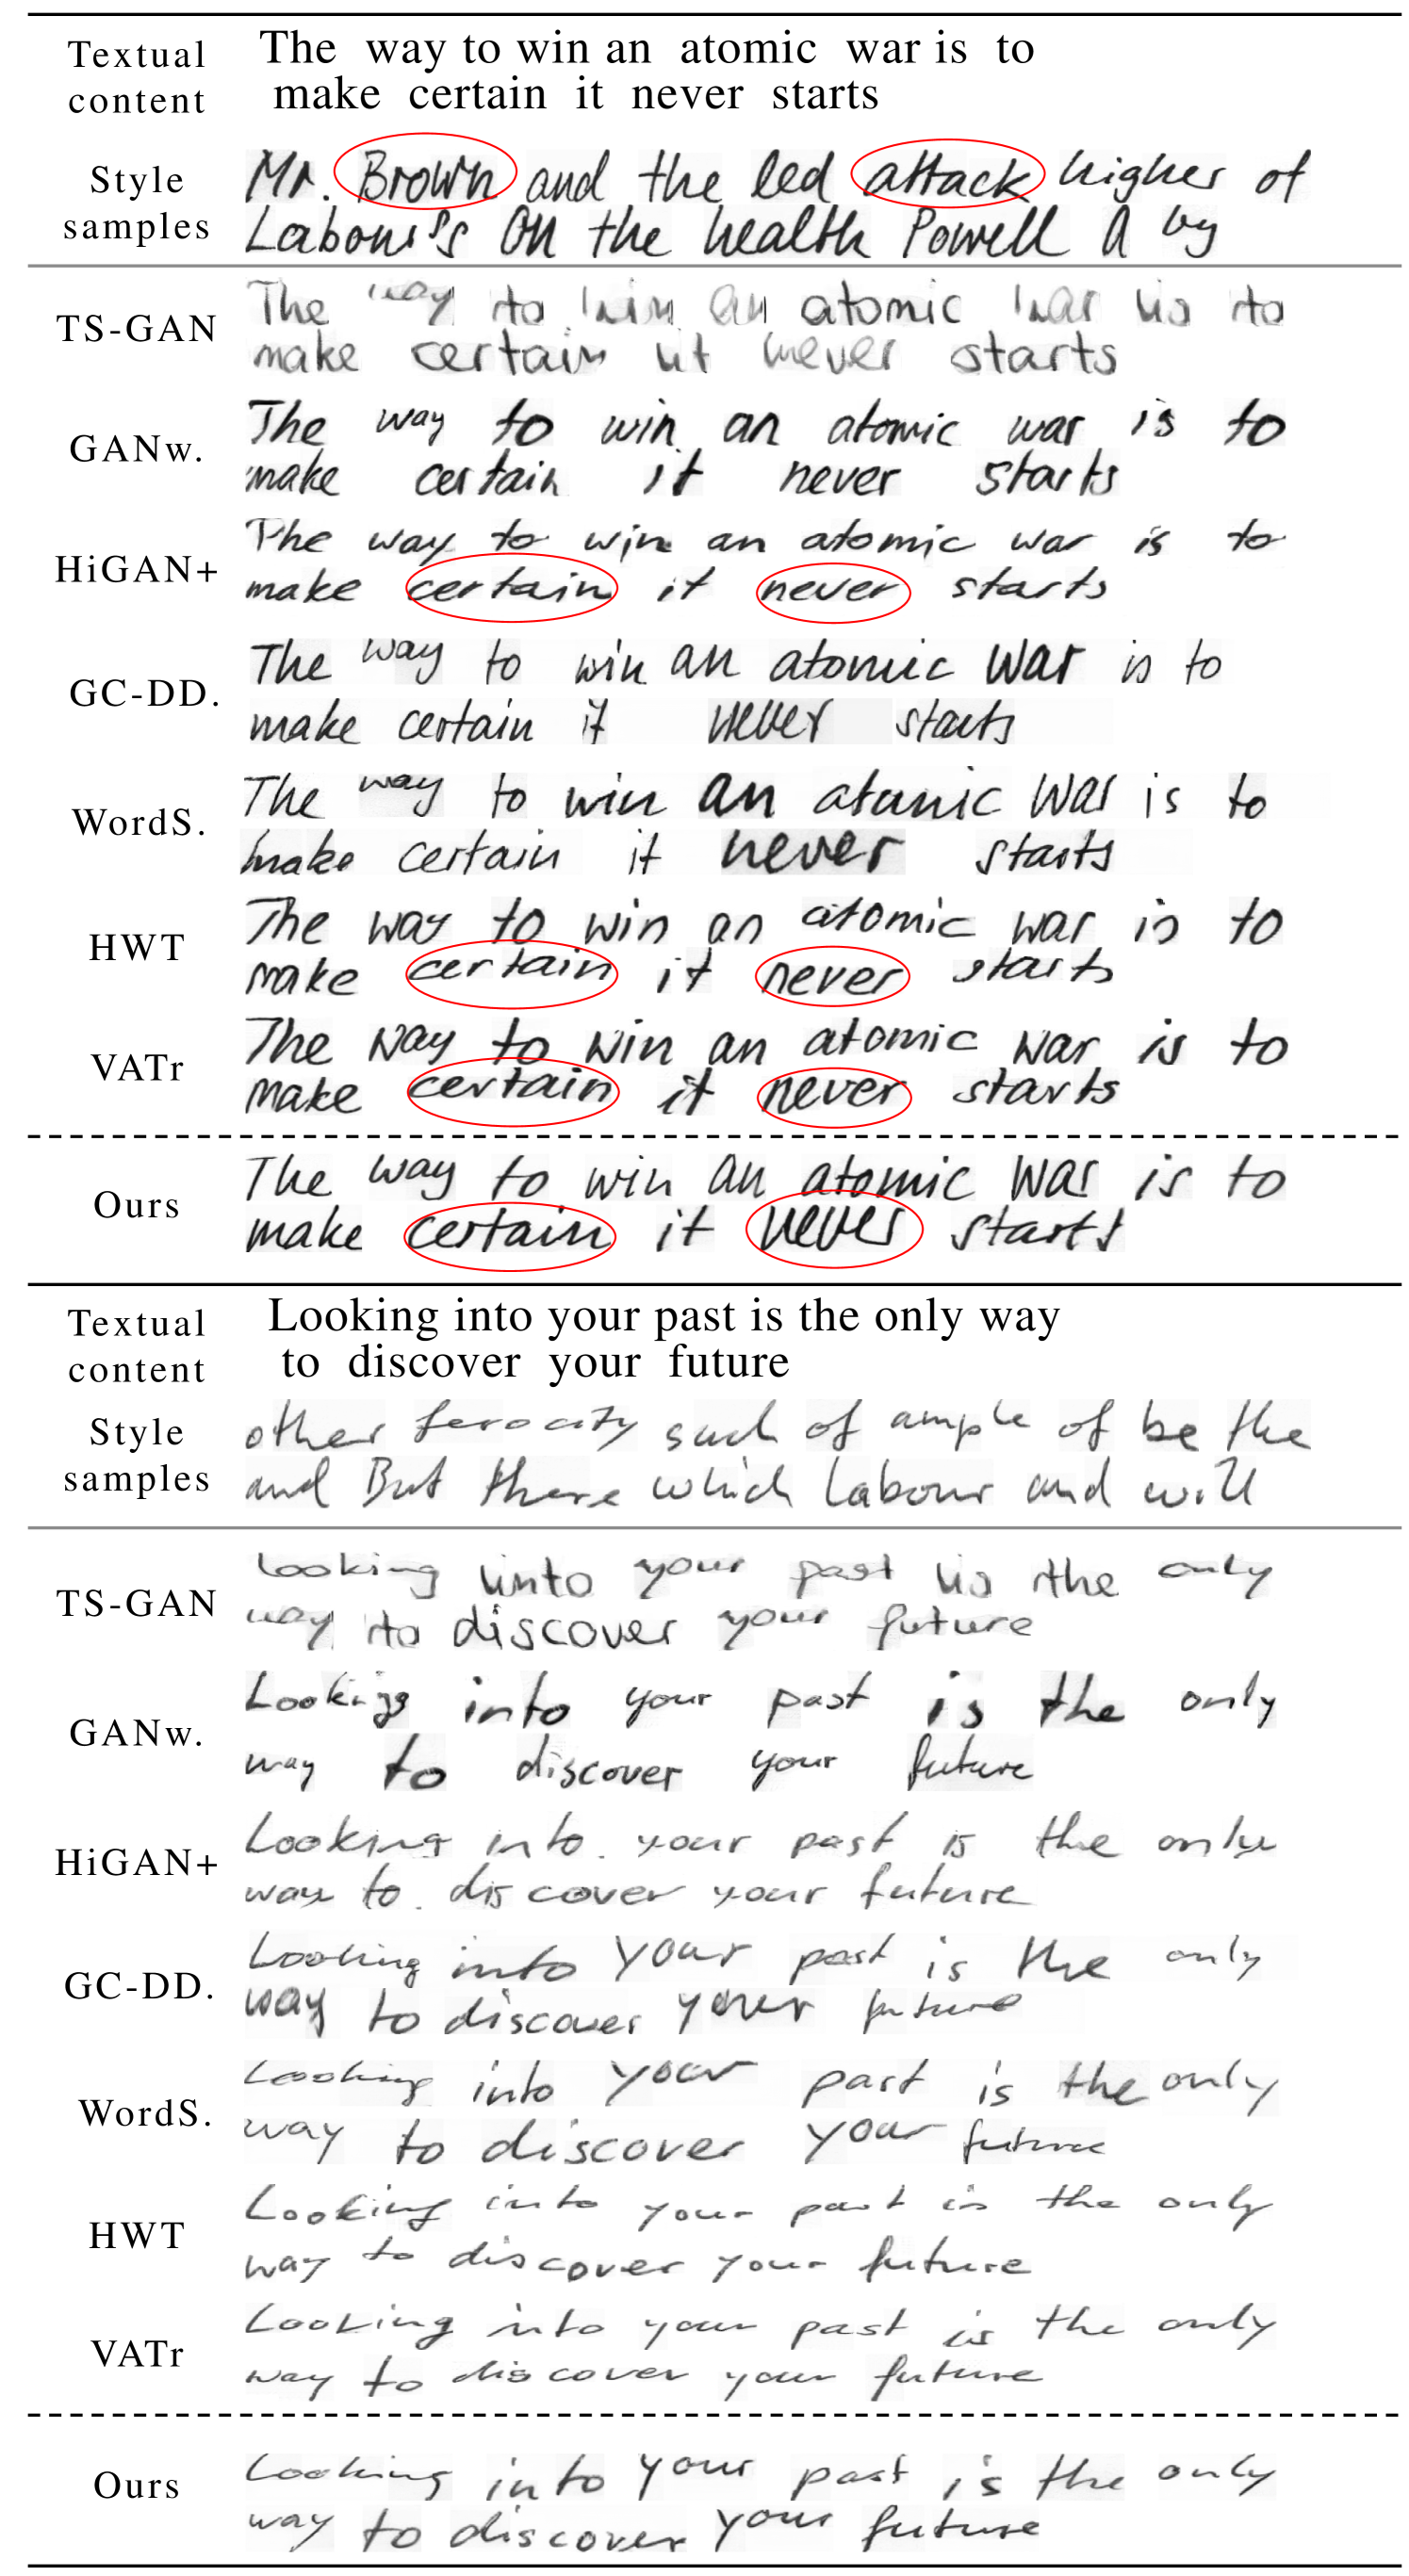 Textual content The way to win an atomic war is to
make certain it never starts
Style samples Mr. Brown and the led attack higher of
Labour's On the health Powell A by
TS-GAN The way to win an atomic war is to
make certain it never starts
GANw. The way to win an atomic war is to
make certain it never starts
HiGAN+ The way to win an atomic war is to
make certain it never starts
GC-DD. The way to win an atomic war is to
make certain it never starts
WordS. The way to win an atomic war is to
make certain it never starts
HWT The way to win an atomic war is to
make certain it never starts
VATr The way to win an atomic war is to
make certain it never starts
Ours The way to win an atomic war is to
make certain it never starts
Textual content Looking into your past is the only way
to discover your future
Style samples other ferocity such of ample of be the
and But there which Labour and will
TS-GAN Looking into your past is the only
way to discover your future
GANw. Looking into your past is the only
way to discover your future
HiGAN+ Looking into your past is the only
way to discover your future
GC-DD. Looking into your past is the only
way to discover your future
WordS. Looking into your past is the only
way to discover your future
HWT Looking into your past is the only
way to discover your future
VATr Looking into your past is the only
way to discover your future
Ours Looking into your past is the only
way to discover your future